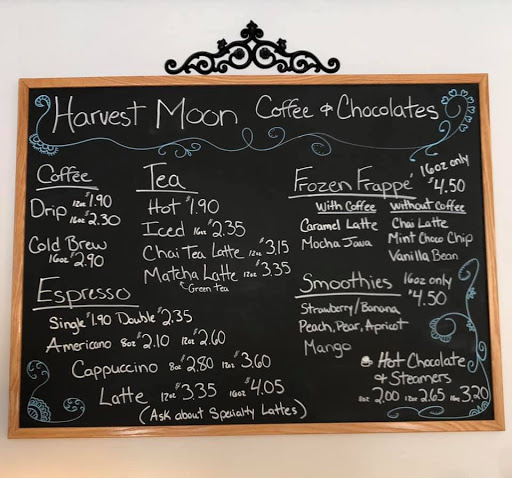 Harvest Moon Coffee & Chocolates
Coffee
Drip 12oz $1.90
16oz $2.30
Cold Brew
16oz $2.90
Espresso
Single $1.90 Double $2.35
Americano 8oz $2.10 12oz $2.60
Cappuccino 8oz $2.80 12oz $3.60
Latte 12oz $3.35 16oz $4.05
(Ask about Specialty Lattes)
Tea
Hot $1.90
Iced 16oz $2.35
Chai Tea Latte 12oz $3.15
Matcha Latte 12oz $3.35
Green tea
Frozen Frappé 16oz only
$4.50
With Coffee
Caramel Latte
Mocha Java
Without Coffee
Chai Latte
Mint Choco Chip
Vanilla Bean
Smoothies 16oz only
$4.50
Strawberry/Banana
Peach, Pear, Apricot
Mango
Hot Chocolate
& Steamers
8oz 2.00 12oz 2.65 16oz 3.20